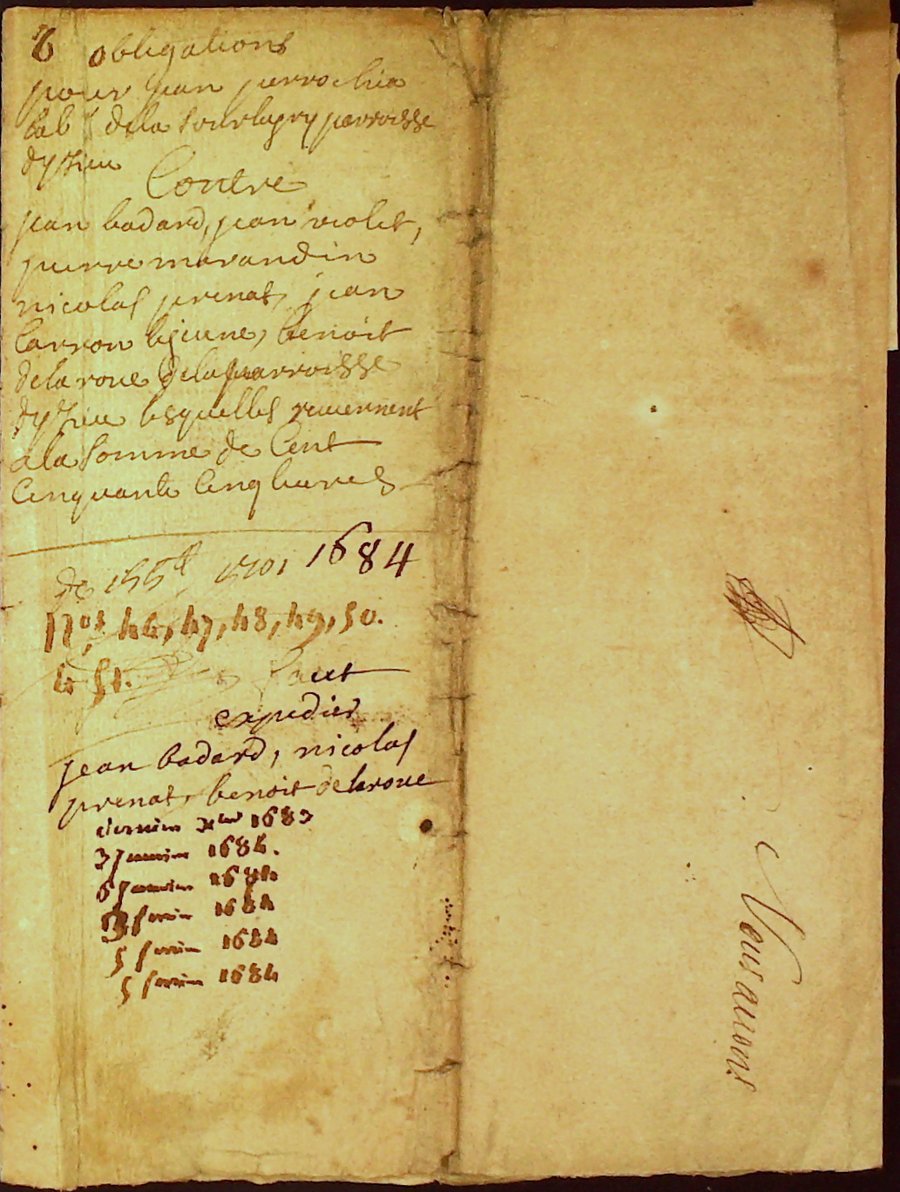 6 obligations
pour jean perrochia
lab^r de la parroisse
dyzieu
Contre
jean badard, jean violet,
pierre marandin
nicolas prenat, jean
Carron lejeune, benoit
delaroue de la parroisse
dyzieu lesquelles reviennent
a la somme de Cent
Cinquante Cinq livres
de 155^lt 1684
N^os, 46, 47, 48, 49, 50.
& 51.
faut
expedier
jean badard, nicolas
prenat, benoit delaroue
dernier x^bre 1683
3 Janvier 1684.
6 Janvier 1684
3 fevrier 1684
5 fevrier 1684
5 fevrier 1684
Nous avons